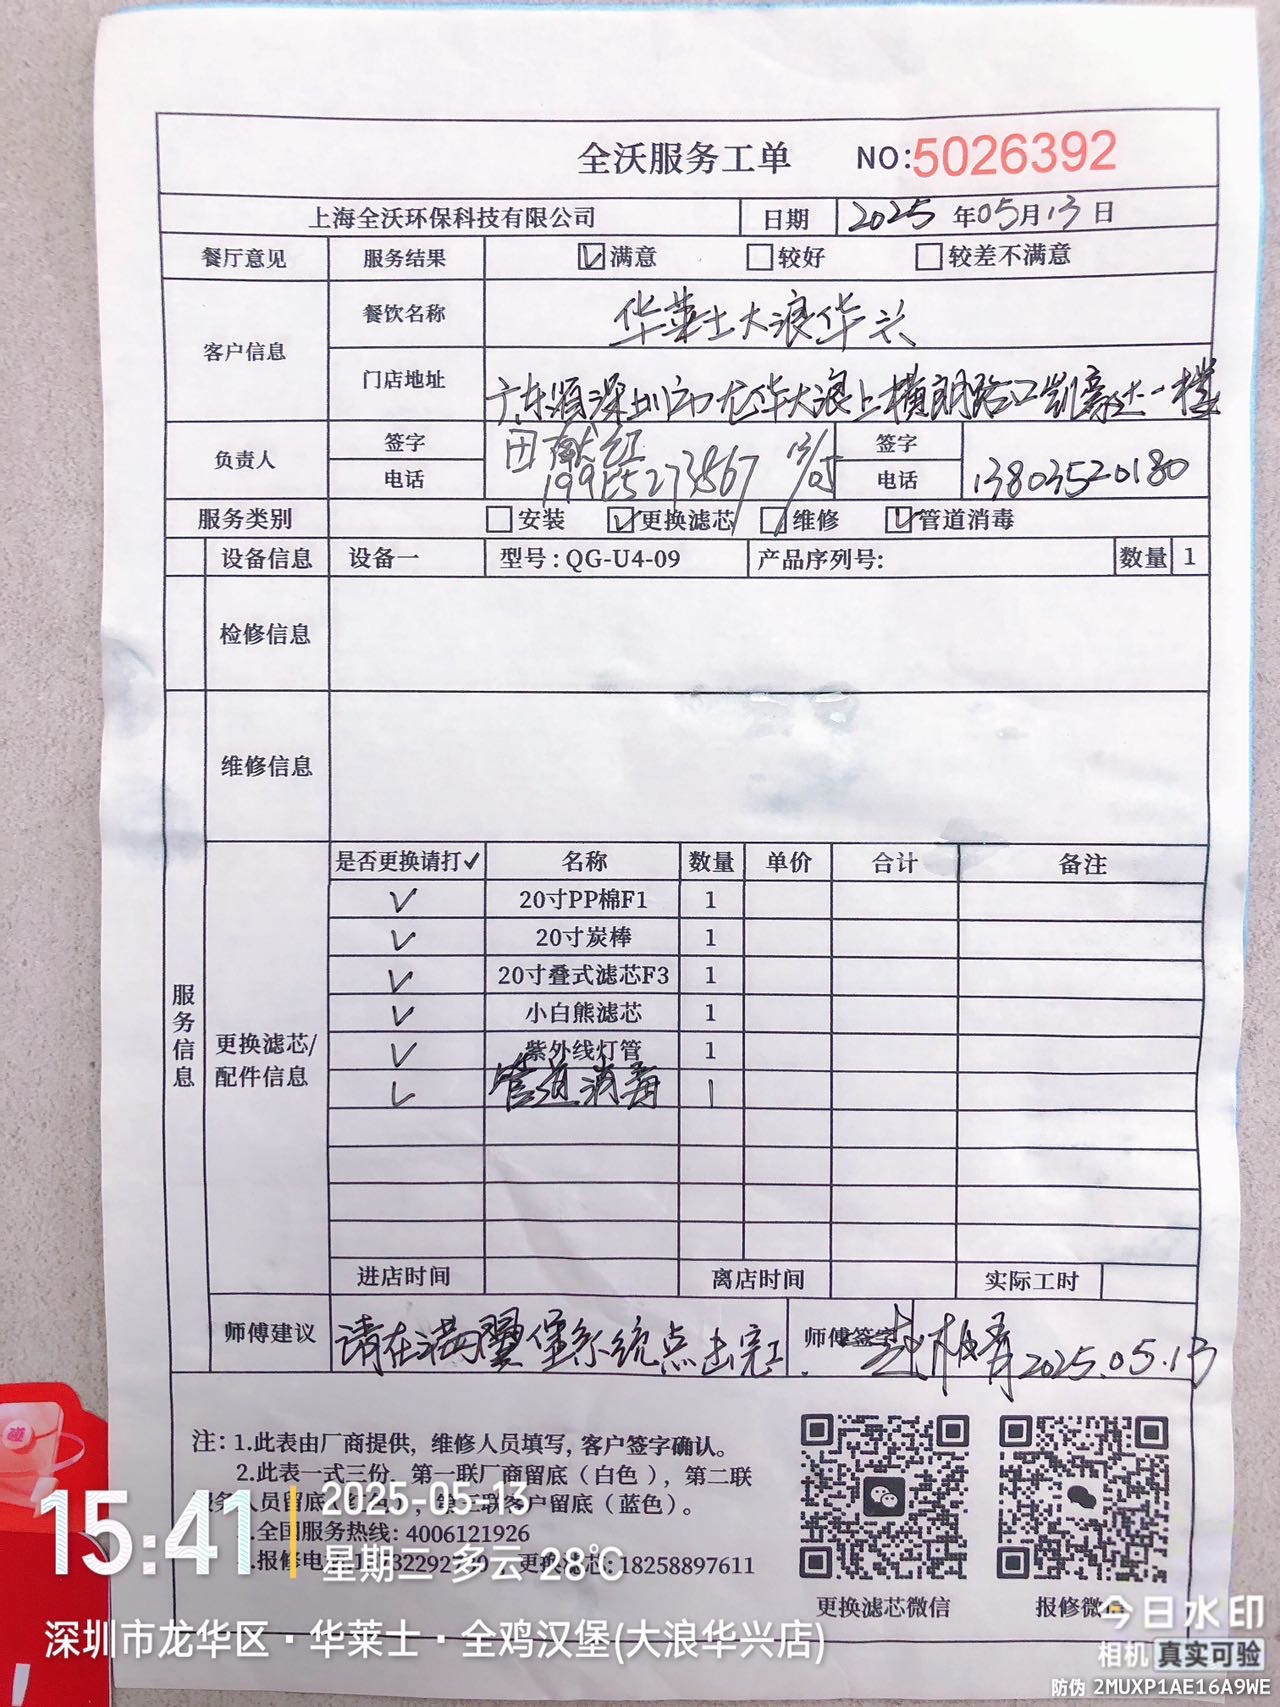 全沃服务工单 NO:5026392
上海全沃环保科技有限公司 日期 2025年05月13日
餐厅意见 服务结果 ☑满意 □较好 □较差不满意
客户信息 餐饮名称 华莱士大浪华兴
门店地址 广东省深圳市龙华大浪上横朗路口凯豪达一楼
负责人 签字 田献红 签字
电话 19915273567 13/05 电话 13803520180
服务类别 □安装 ☑更换滤芯 □维修 ☑管道消毒
设备信息 设备一 型号:QG-U4-09 产品序列号: 数量 1
检修信息
维修信息
服务信息
更换滤芯/
配件信息
是否更换请打✓ 名称 数量 单价 合计 备注
✓ 20寸PP棉F1 1
✓ 20寸炭棒 1
✓ 20寸叠式滤芯F3 1
✓ 小白熊滤芯 1
✓ 紫外线灯管 1
✓ 管道消毒 1
进店时间 离店时间 实际工时
师傅建议 请在满翼堡系统点击完工. 师傅签字 2025.05.13
注:1.此表由厂商提供,维修人员填写,客户签字确认。
2.此表一式三份.第一联厂商留底(白色),第二联
人员留底 第三联客户留底(蓝色)。
.全国服务热线:4006121926
.报修电 更换滤芯:18258897611
更换滤芯微信 报修微信
15:41
2025-05-13
星期二 多云 28℃
深圳市龙华区·华莱士·全鸡汉堡(大浪华兴店)
今日水印
相机 真实可验
防伪 2MUXP1AE16A9WE
碰